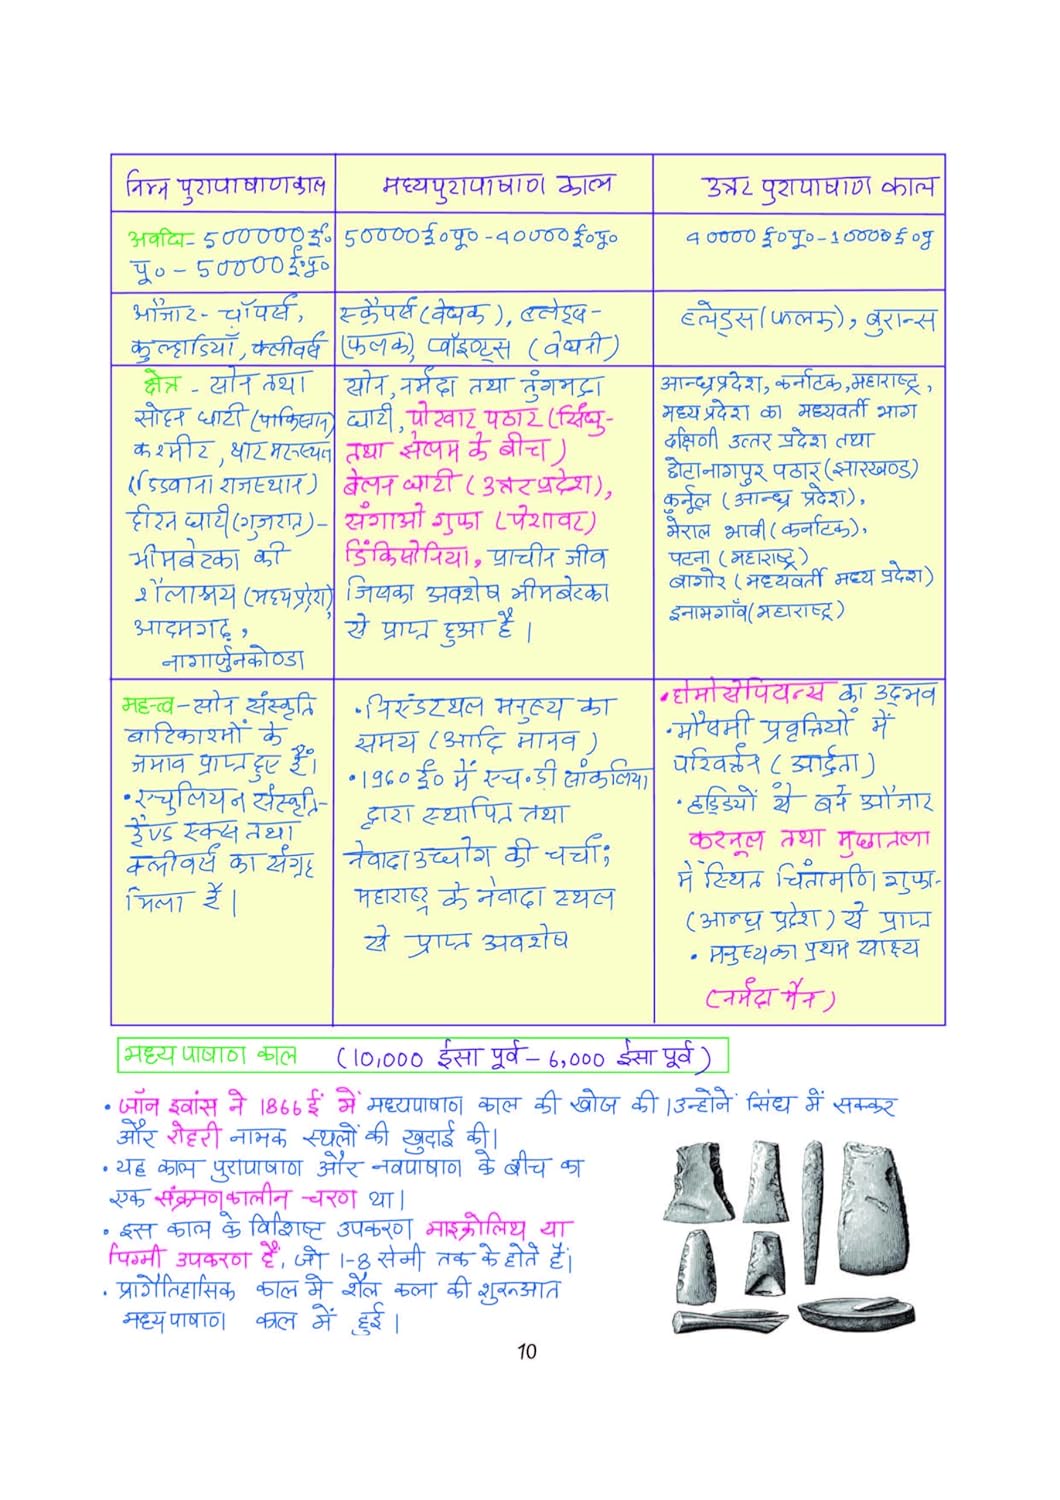 निम्न पुरापाषाणकाल
मध्यपुरापाषाण काल
उत्तर पुरापाषाण काल
अवधि- 500000ई॰
पू॰ - 50000ई॰पू॰
50000ई॰पू॰-40000ई॰पू॰
40000ई॰पू॰-10000ई॰पू
औजार- चॉपर्स,
कुल्हाडियाँ, क्लीवर्स
स्क्रैपर्स (वेधक), ब्लेड्स-
(फलक), प्वॉइन्ट्स (वेधनी)
ब्लेड्स (फलक), बुरान्स
क्षेत्र - सोन तथा
सोहन घाटी (पाकिस्तान)
कश्मीर, थार मरुस्थल
(डिडवाना राजस्थान)
हीरन घाटी (गुजरात)-
भीमबेटका की
शैलाश्रय (मध्यप्रदेश),
आदमगढ़,
नागार्जुनकोण्डा
सोन, नर्मदा तथा तुंगभद्रा
घाटी, पोखार पठार (सिंधु-
तथा झेलम के बीच)
बेलन घाटी (उत्तरप्रदेश),
संगाओ गुफा (पेशावर)
डिंकिसोनिया, प्राचीन जीव
जिसका अवशेष भीमबेटका
से प्राप्त हुआ है।
आन्ध्रप्रदेश, कर्नाटक, महाराष्ट्र,
मध्यप्रदेश का मध्यवर्ती भाग
दक्षिणी उत्तर प्रदेश तथा
छोटानागपुर पठार (झारखण्ड)
कुर्नूल (आन्ध्र प्रदेश),
मेराल भावी (कर्नाटक),
पटना (महाराष्ट्र)
बागोर (मध्यवर्ती मध्य प्रदेश)
इनामगाँव (महाराष्ट्र)
महत्व- सोन संस्कृति
बाटिकाश्मों के
जमाव प्राप्त हुए हैं।
• एचुलियन संस्कृति-
हैण्ड एक्स तथा
क्लीवर्स का संग्रह
मिला है।
• निएंडरथल मनुष्य का
समय (आदि मानव)
• 1960 ई॰ में एच.डी सांकलिया
द्वारा स्थापित तथा
नेवादा उद्योग की चर्चा;
महाराष्ट्र के नेवादा स्थल
से प्राप्त अवशेष
• होमोसेपियन्स का उद्भव
• मौसमी प्रवृत्तियों में
परिवर्तन (आर्द्रता)
• हड्डियों से बने औजार
करनूल तथा मुछातला
में स्थित चिंतामणि गुफा-
(आन्ध्र प्रदेश) से प्राप्त
• मनुष्य का प्रथम साक्ष्य
(नर्मदा मैन)
मध्य पाषाण काल (10,000 ईसा पूर्व – 6,000 ईसा पूर्व)
• जॉन इवांस ने 1866 ई में मध्यपाषाण काल की खोज की। उन्होनें सिंध में सक्कर
और रोहरी नामक स्थलों की खुदाई की।
• यह काल पुरापाषाण और नवपाषाण के बीच का
एक संक्रमणकालीन चरण था।
• इस काल के विशिष्ट उपकरण माइक्रोलिथ या
पिग्मी उपकरण हैं, जो 1-8 सेमी तक के होते हैं।
• प्रागैतिहासिक काल मे शैल कला की शुरुआत
मध्यपाषाण काल में हुई।
10